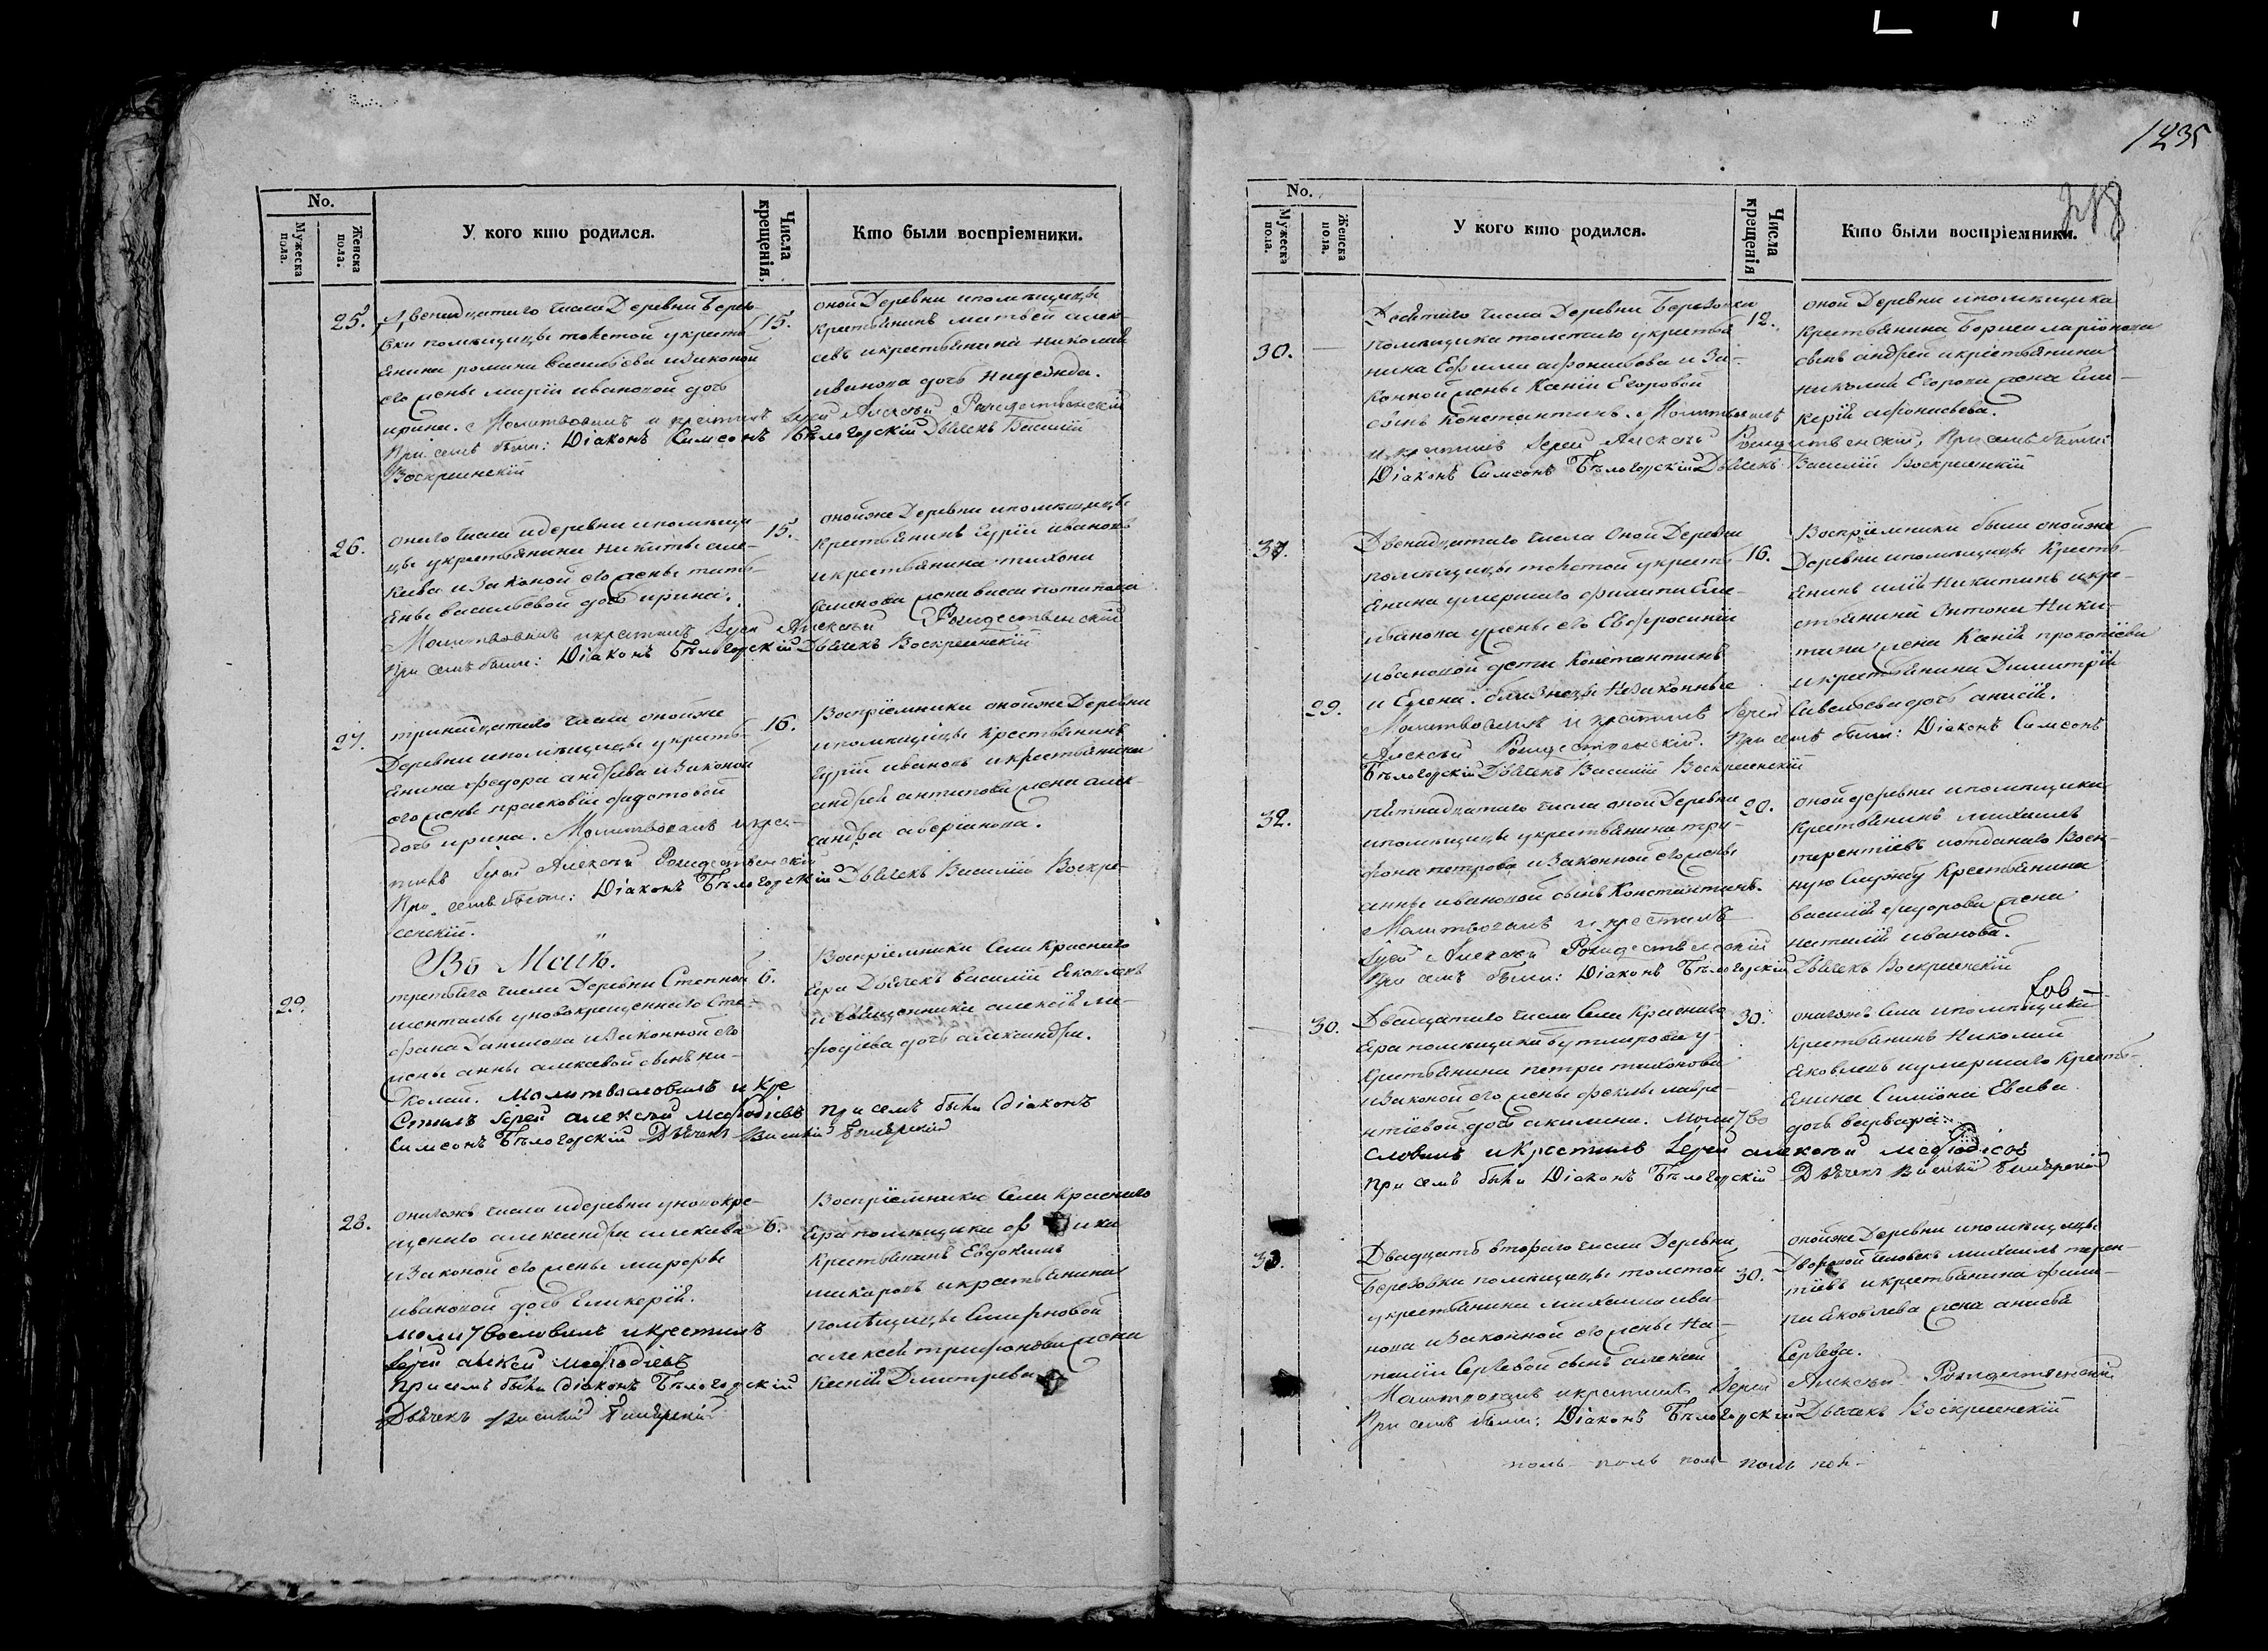 1235
218
No.
Мужеска пола.
Женска пола.
У кого кто родился.
Числа крещенія,
Кто были воспріемники.
25.
Двенадцатаго числа Деревни Берез-
овки помѣщицы толстой у кресть-
янина романа васильева и законой
его жены марiи ивановой дочь
ирина. Молитвовалъ и крестилъ Іерей Алексѣй Рождественскій
При семъ были: Діаконъ Самсонъ Бѣлогорскій Дьячекъ Василій
Воскресенскій
15.
оной Деревни и помѣщицы
крестьянинъ матвей алек-
сѣвъ и крестьянина николая
иванова дочь надежда.
26.
онаго числа и деревни и помѣщи-
цы у крестьянина никиты але-
ксѣва и законой его жены тать-
яны васильевой дочь ирина.
Молитвовалъ и крестилъ Іерей Алексѣй Рождественскій
При семъ были: Діаконъ Бѣлогорскій Дьячекъ Воскресенскій
15.
оной же Деревни и помѣщицы
крестьянинъ гурiй ивановъ
и крестьянина тихона
жена васса потапова
27.
тринадцатаго числа оной же
Деревни и помѣщицы у кресть-
янина федора андрѣева и законой
его жены прасковiи федотовой
дочь ирина. Молитвовалъ и крес-
тилъ Іерей Алексѣй Рождественскій
При семъ были: Діаконъ Бѣлогорскій Дьячекъ Василій Воскре-
сенскій.
16.
Воспрiемники оной же Деревни
и помѣщицы крестьянинъ
гурiй ивановъ и крестьянина
андрея антипова жена алек-
сандра аверiанова.
Въ Маѣ.
29.
третьяго числа Деревни Степной
у новокрещеннаго Сте-
фана Данилова и законной его
жены анны алексѣвой сынъ ни-
колай. молитвословилъ и кре
стилъ Іерей алексѣй мефодiевъ при семъ были дiаконъ
Самсонъ Бѣлогорскій Дьячекъ Василiй
6.
Воспрiемники Села Краснаго
Яра Дьячекъ василiй Яковлевъ
и священника алексѣя ме-
фодiева дочь александра.
28.
онагожъ числа и деревни у новокре-
щенаго александра алексѣва
и законой его жены марфы
ивановой дочь гликерiя.
молитвословилъ и крестилъ
Іерей алексѣй мефодiевъ
при семъ были дiаконъ Бѣлогорскій
Дьячекъ Василiй
6.
Воспрiемники Села Краснаго
Яра помѣщика
крестьянинъ Евдокимъ
макаровъ и крестьянина
помѣщицы Смирновой
алексѣя трифонова жена
ксенiя Дмитрева
No.
Мужеска пола.
Женска пола.
У кого кто родился.
Числа крещенія
Кто были воспріемники.
30.
Девятаго числа Деревни Березовки
помѣщика толстаго у крестья-
нина Ефима афонасьева и за-
конной жены Ксенiи Егоровой
сынъ Константинъ. Молитвовалъ
и крестилъ Іерей Алексѣй Рождественскій, При семъ были:
Діаконъ Самсонъ Бѣлогорскій Дьячекъ Василій Воскресенскій
12.
оной Деревни и помѣщика
крестьянина Бориса ларiонова
сынъ андрей и крестьянина
николая Егорова жена гли-
керiя афонасьева.
31.
Двенадцатаго числа оной Деревни
помѣщицы толстой у кресть-
янина умершаго филипа
иванова у жены его Евфросинiи
ивановой дети Константинъ
29.
и Елена. близнецы незаконные
Молитвовалъ и крестилъ Іерей
Алексѣй Рождественскій. При семъ были: Діаконъ Самсонъ
Бѣлогорскій Дьячекъ Василій Воскресенскій
16.
Воспрiемники были оной же
Деревни и помѣщицы кресть-
янинъ илiя никитинъ и кре-
стьянина антона ники-
тина жена Ксенiя прокопiева
и крестьянина Димитрiя
Савельева дочь анисiя.
32.
Пятнадцатаго числа оной Деревни
и помѣщицы у крестьянина три-
фона петрова и законной его жены
анны ивановой сынъ Константинъ.
Молитвовалъ и крестилъ
Іерей Алексѣй Рождественскій
При семъ были: Діаконъ Бѣлогорскій Дьячекъ Воскресенскій
20.
оной деревни и помѣщика
крестьянинъ михаилъ
терентiевъ и отданаго Воен-
ную Службу крестьянина
василiя федорова жена
наталiя иванова.
30.
Двадцатаго числа Села Краснаго
Яра помѣщика бутлирова у
крестьянина петра тихонова
и законой его жены феклы лавре-
нтiевой дочь акилина. Молитво
словилъ и крестилъ Іерей алексѣй мефодiевъ
при семъ были Діаконъ Бѣлогорскій Дьячекъ Василiй
30.
онагожъ Села и помѣщика
крестьянинъ Николай
Яковлевъ и умершаго кресть-
янина Симiона Евсева
дочь варвара.
33.
Двадцать втораго числа Деревни
Березовки помѣщицы толстой
у крестьянина михаила ива-
нова и законной его жены на-
талiи Сергѣвой сынъ алексѣй
Молитвовалъ и крестилъ Іерей Алексѣй Рождественскій
При семъ были: Діаконъ Бѣлогорскій Дьячекъ Воскресенскій
30.
оной же Деревни и помѣщицы
Дворовой человекъ михаилъ терен-
тiевъ и крестьянина фили-
па Яковлева жена анисья
Сергѣва.